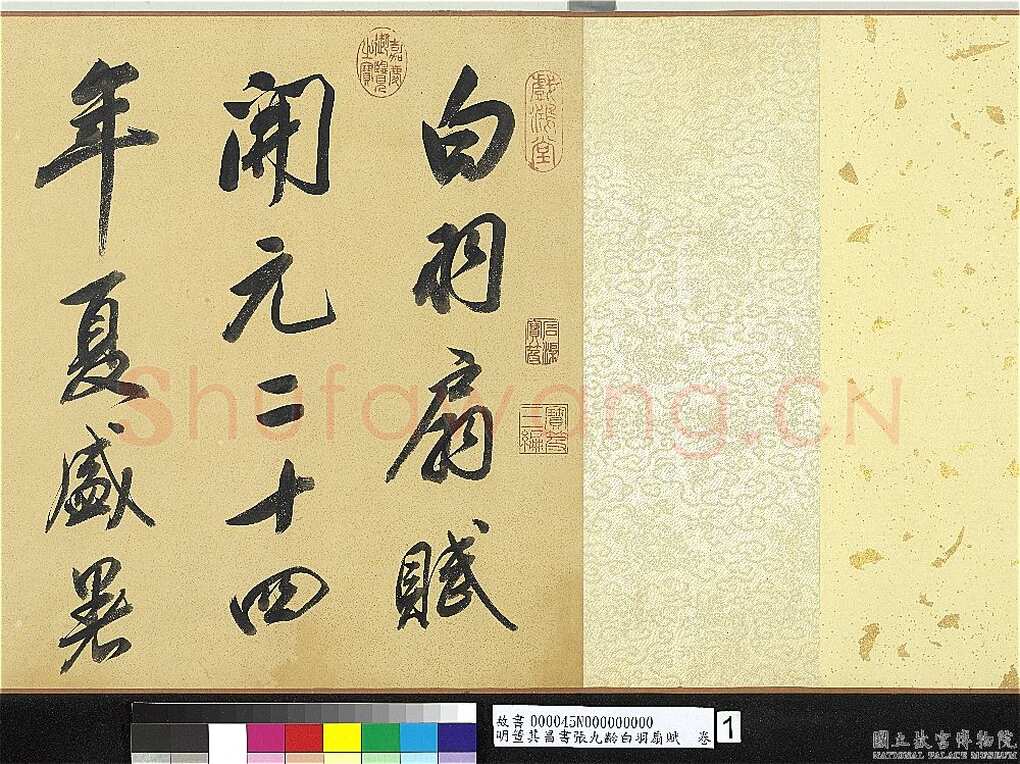 白羽扇賦
開元二十四
年夏盛暑
嘉慶御覽之寶
戲鴻堂
石渠寶笈
寶笈三編
Shufawang.CN
故書 000045N000000000
明董其昌書張九齡白羽扇賦 卷
1
國立故宮博物院
NATIONAL PALACE MUSEUM